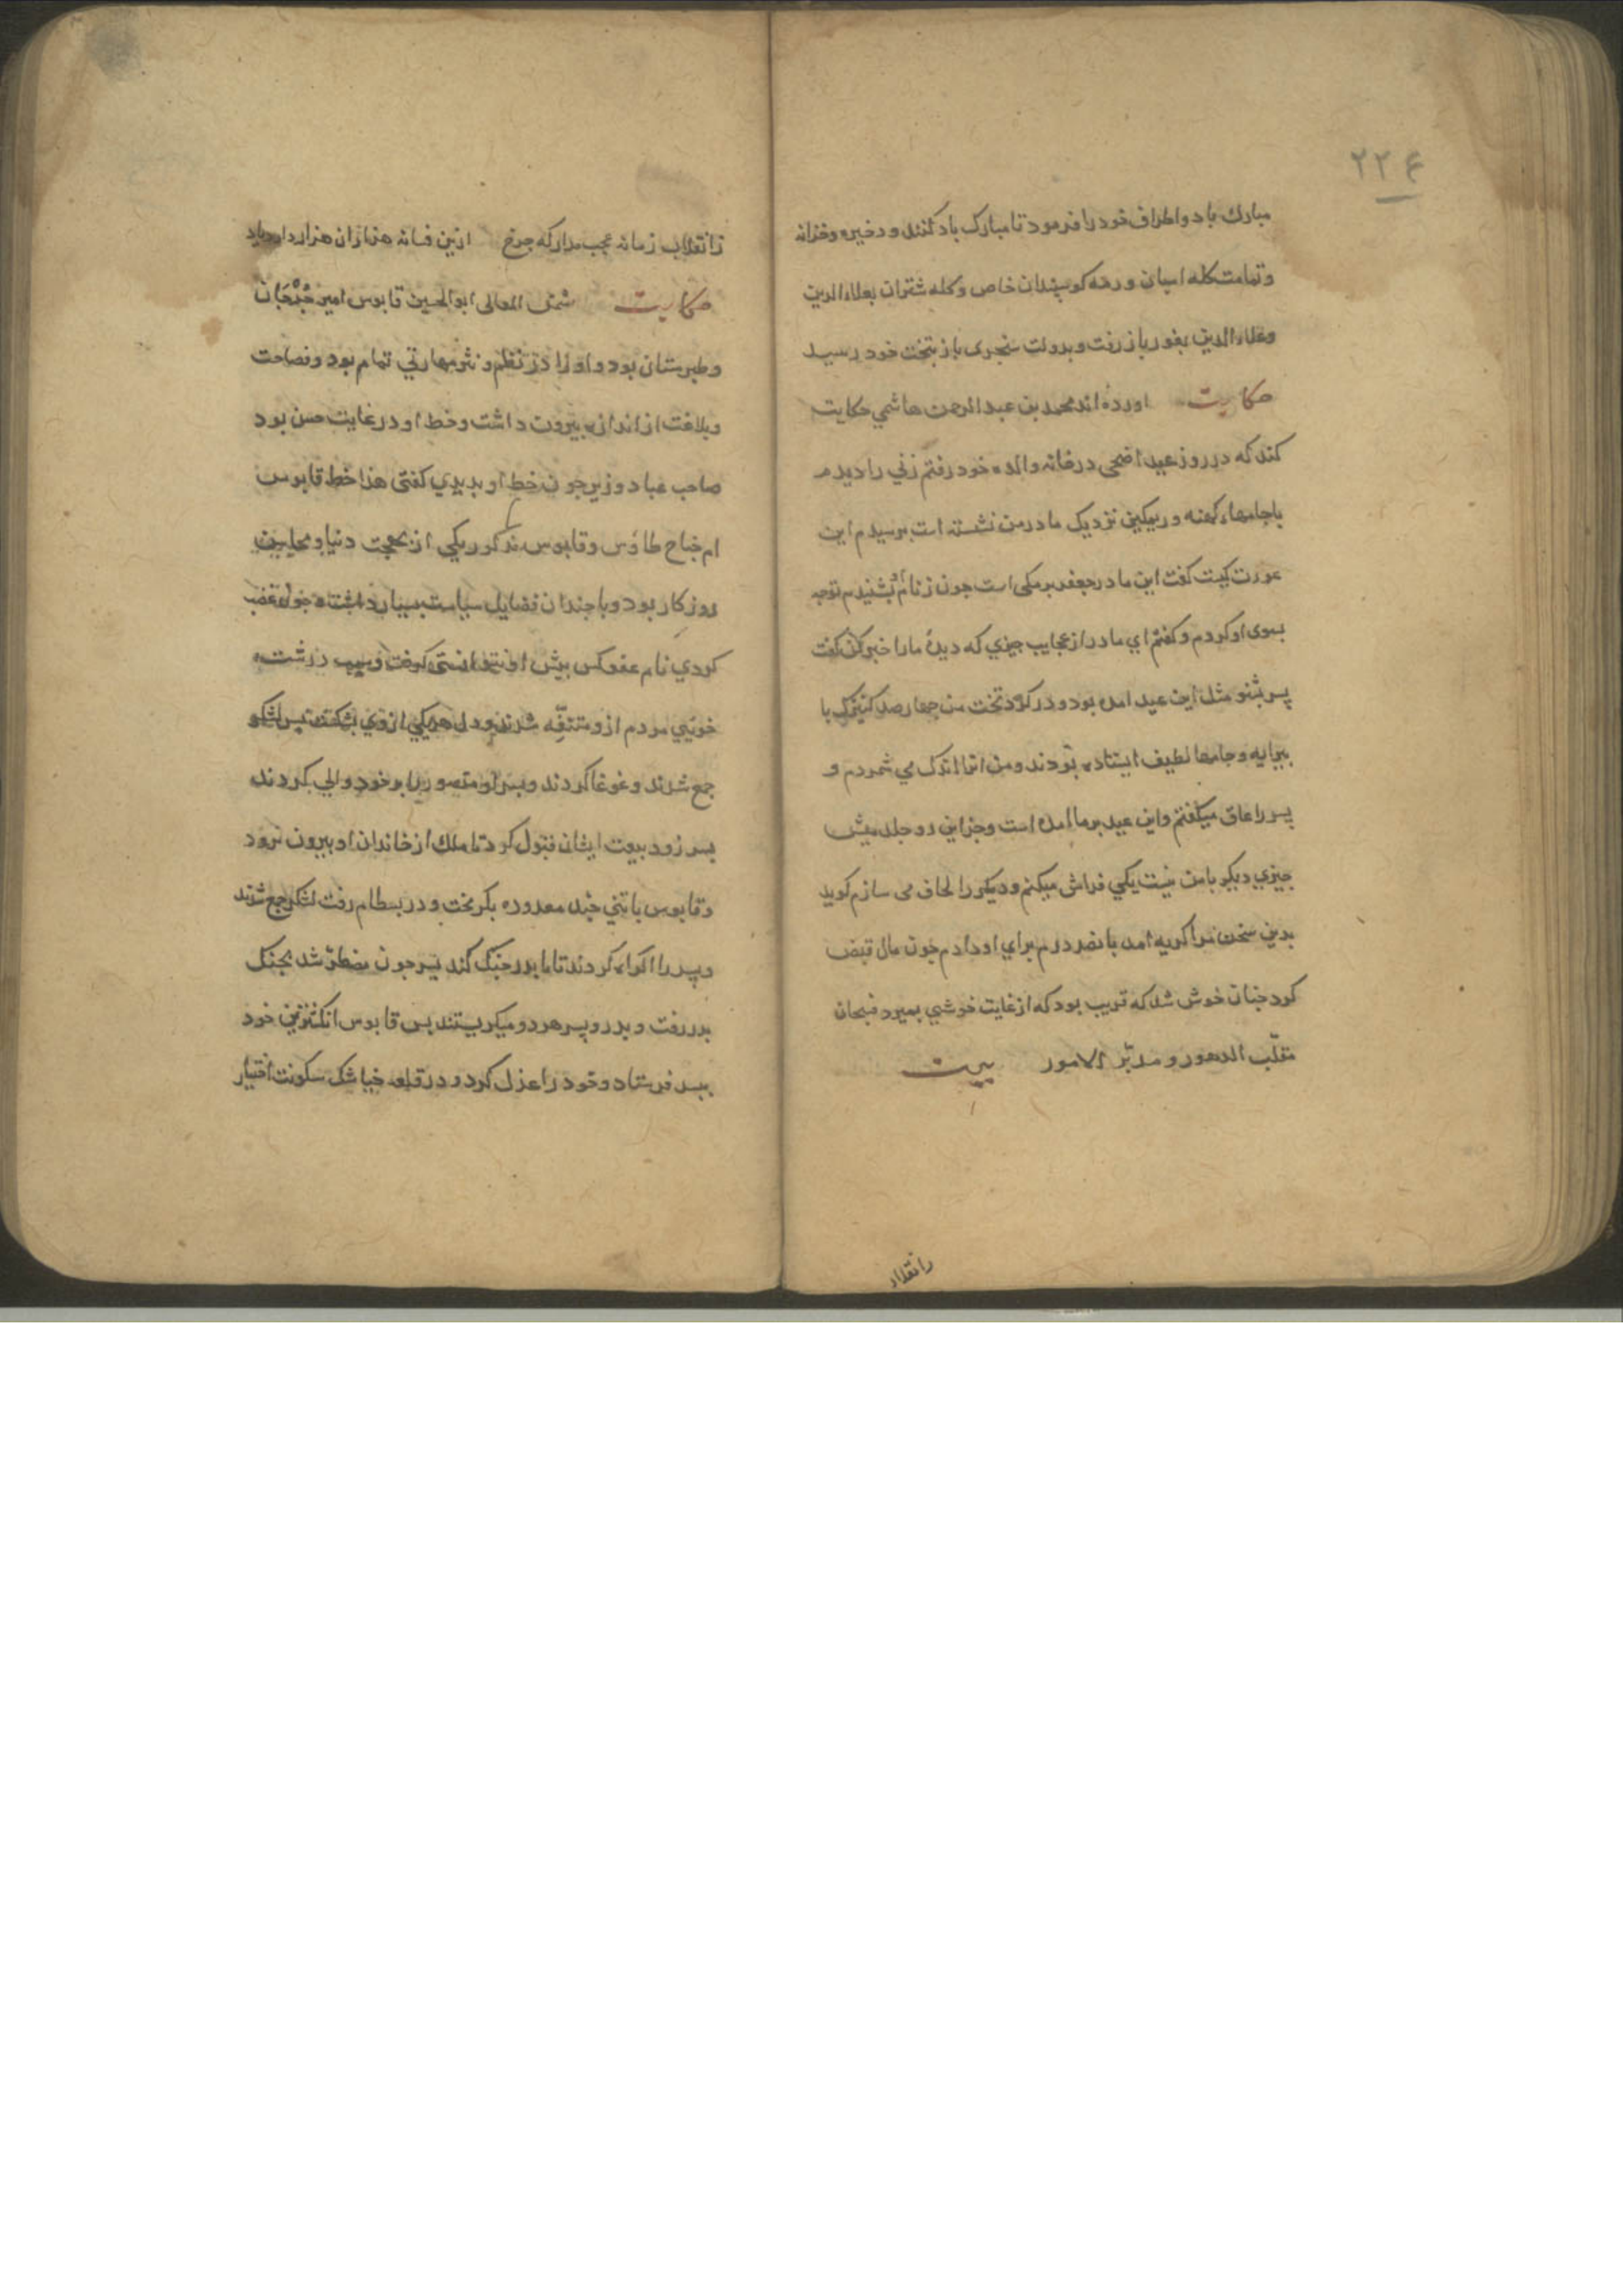 ۲۲۴
مبارك باد و اطراف خود را فرمود تا مبارک باد کنند و ذخیره و خزانه
و تمامت کله اسبان و رمه کوسپندان خاص و کله شتران بعلاء الدین
و علاء الدین بغور باز رفت و بدولت سنجری باز بتخت خود رسید
حکایت اورده اند محمد بن عبد الرحمن هاشمي حکایت
کند که در روز عید اضحی در خانه والده خود رفتم زني را دیدم
با جامهاء کهنه و ریمکین نزدیک مادر من نشسته است پرسیدم این
عورت کیست کفت این مادر جعفر برمکی است جون ز نام او بشنیدم توجه
بسوی او کردم و کفتم اي مادر از عجایب جیزي که دیدهٔ ما را خبر کن کفت
پسر بشنو مثل این عید امده بود و در کرد تخت من جهار صد کنیزک با
پیرایه و جامها لطیف ایستاده بودند و من انرا اندک می شمردم و
پسر را عاق میکفتم و این عید بر ما امده است و جز این دو جلد میش
جیزي دیکر با من نیست یکي فراش میکنم و دیکر را لحاف می سازم کوید
بدین سخن مرا کریه امد پانصد درم برای او دادم جون مال قبض
کرد جنان خوش شد که قریب بود که از غایت خوشي بمیرد فسبحان
مقلّب الدهور و مدبّر الامور بیت
زانقلاب
زانقلاب زمانه عجب مدار که جرخ ازین فسانه هزاران هزار دارد یاد
حکایت شمس المعالی ابو الحسین قابوس امیر جُرْجَان
و طبرستان بود و او را در نظم و نثر مهارتي تمام بود و فصاحت
و بلاغت از اندازه بیرون داشت و خط او در غایت حسن بود
صاحب عباد وزیر جون خط او بدیدي کفتی هذا خط قابوس
ام جناح طاوس و قابوس مذکور یکي از بهجت دنیا و محاسن
روزکار بود و با جندان فضایل سیاست بسیار داشت و جون غضب
کردي نام عفو کس پیش او نتوانستی کرفت و بسبب درشت
خویي مردم ازو متنفّر شدند و دل هر یکي از وي بشکست پس لشکر
جمع شدند و غوغا کردند و پسر او منصور را بر خود والي کردند
پسر زود بیعت ایشان قبول کرد تا ملك از خاندان او بیرون نرود
و قابوس با تني جند معدوده بکریخت و در بسطام رفت لشکر جمع شدند
و پسر را اکراه کردند تا با پدر جنک کند پسر جون مضطر شد بجنک
پدر رفت و پدر و پسر هر دو میکریستند پس قابوس انکشترین خود
بپسر فرستاد و خود را عزل کرد و در قلعه خیاشک سکونت اختیار